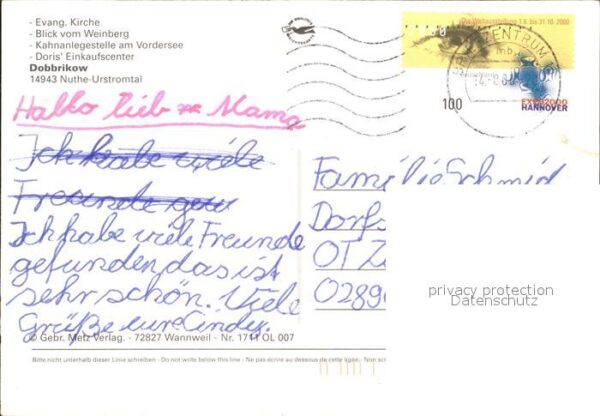 - Evang. Kirche
- Blick vom Weinberg
- Kahnanlegestelle am Vordersee
- Doris' Einkaufscenter
Dobbrikow
14943 Nuthe-Urstromtal
Die Weltausstellung 1.6. bis 31.10. 2000
BRIEFZENTRUM
100
EXPO2000
HANNOVER
Hallo lieb Mama
Ich habe viele
Freunde
Ich habe viele Freunde
gefunden, das ist
sehr schön. Viele
Grüße eure Cindy.
Familie Schmid
Dorfs
OT Z
0289
privacy protection
Datenschutz
© Gebr. Metz Verlag. - 72827 Wannweil - Nr. 1711 OL 007
Bitte nicht unterhalb dieser Linie schreiben - Do not write below this line - Ne pas ecrire au dessous de cette ligne - Non scr